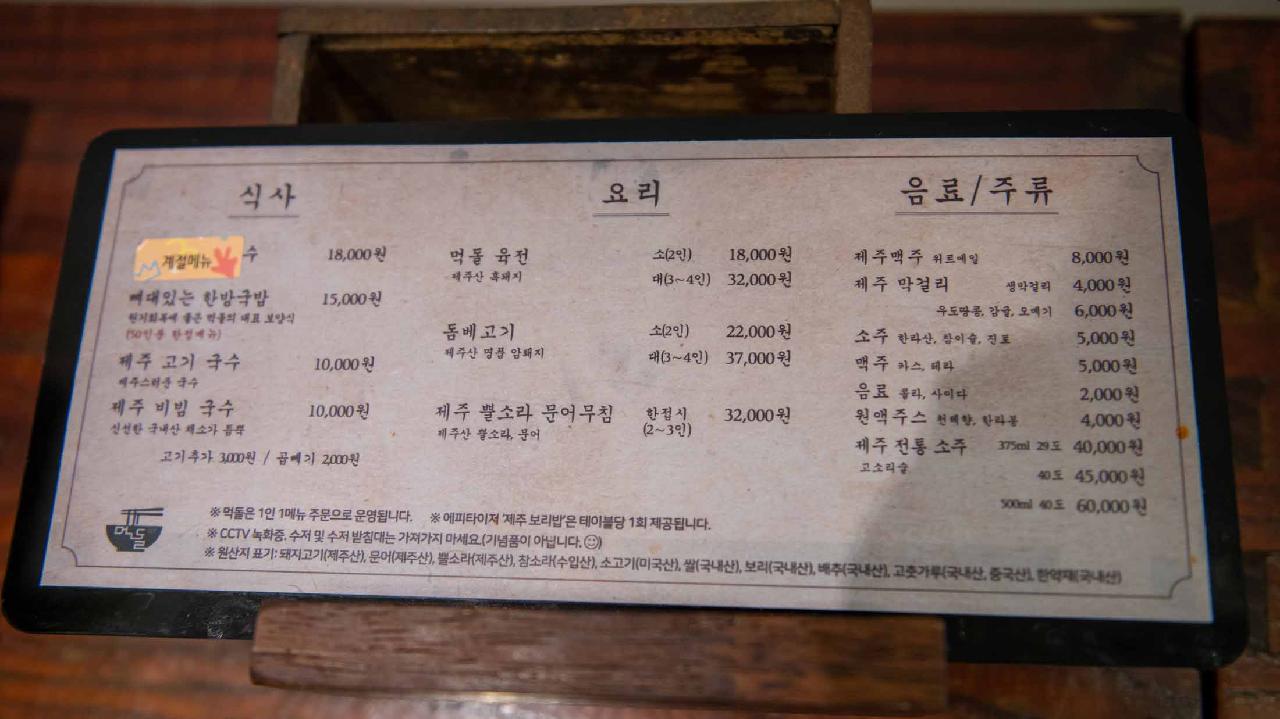 식사
계절메뉴 수 18,000원
뼈대있는 한방국밥 15,000원
원기회복에 좋은 먹돌의 대표 보양식
(50인분 한정메뉴)
제주 고기 국수 10,000원
제주스러운 국수
제주 비빔 국수 10,000원
신선한 국내산 채소가 듬뿍
고기추가 3,000원 / 곱빼기 2,000원
요리
먹돌 육전 소(2인) 18,000원
제주산 흑돼지 대(3~4인) 32,000원
돔베고기 소(2인) 22,000원
제주산 명품 암돼지 대(3~4인) 37,000원
제주 뿔소라 문어무침 한접시 32,000원
제주산 뿔소라, 문어 (2~3인)
음료/주류
제주맥주 위트에일 8,000원
제주 막걸리 생막걸리 4,000원
우도땅콩, 감귤, 오메기 6,000원
소주 한라산, 참이슬, 진로 5,000원
맥주 카스, 테라 5,000원
음료 콜라, 사이다 2,000원
원액주스 천혜향, 한라봉 4,000원
제주 전통 소주 375ml 29도 40,000원
고소리술 40도 45,000원
500ml 40도 60,000원
먹돌
※ 먹돌은 1인 1메뉴 주문으로 운영됩니다. ※ 에피타이져 '제주 보리밥'은 테이블당 1회 제공됩니다.
※ CCTV 녹화중. 수저 및 수저 받침대는 가져가지 마세요.(기념품이 아닙니다.☺)
※ 원산지 표기: 돼지고기(제주산), 문어(제주산), 뿔소라(제주산), 참소라(수입산), 소고기(미국산), 쌀(국내산), 보리(국내산), 배추(국내산), 고춧가루(국내산, 중국산), 한약재(국내산)